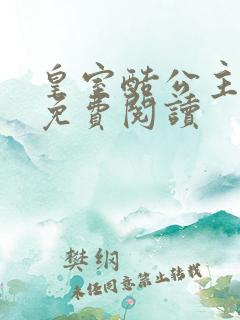 皇室酷公主
免費閱讀
樊纲
未任同意禁止转载